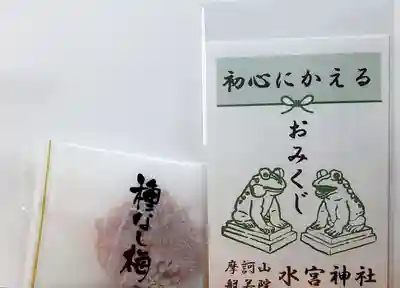 初心にかえる
おみくじ
摩訶山
般若院
水宮神社
種なし梅